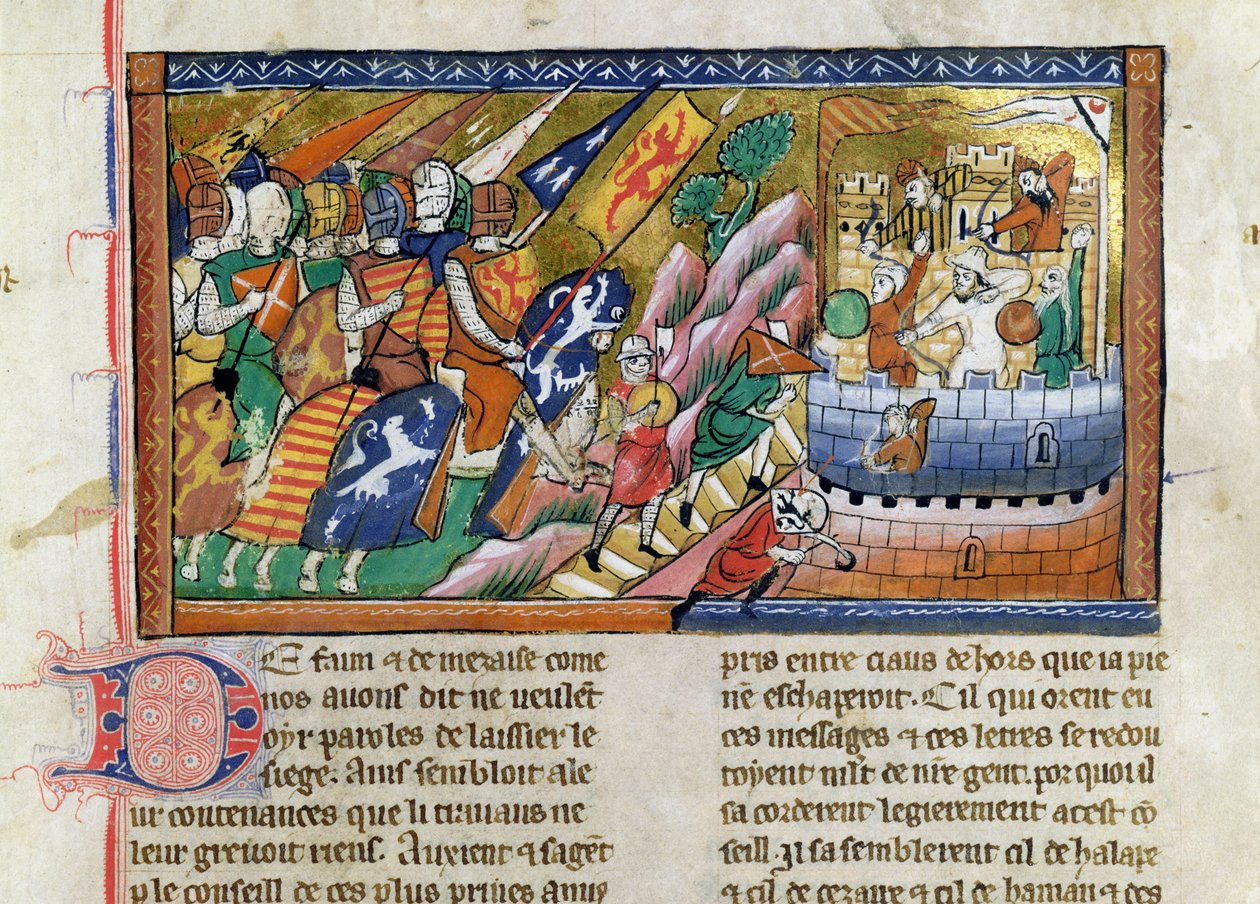 DE faim & de mezaise come
nos auons dit ne veulēt
oyr paroles de laissier le
siege. Ains sembloit a le
ur contenances que li trauaus ne
leur greuoit riens. Auxient & sagēt
p le conseill de ces plus priues amis
pris entre ciaus dehors que ia pie
nē eschaperoit. Cil qui orent eu
ces messages & ces letres se redou
toyent mlt de nrē gent. por quoi il
sa corderent legierement a cest cō
seill. Il sa semblerent cil de halape
& cil de cezaire & cil de haman & des